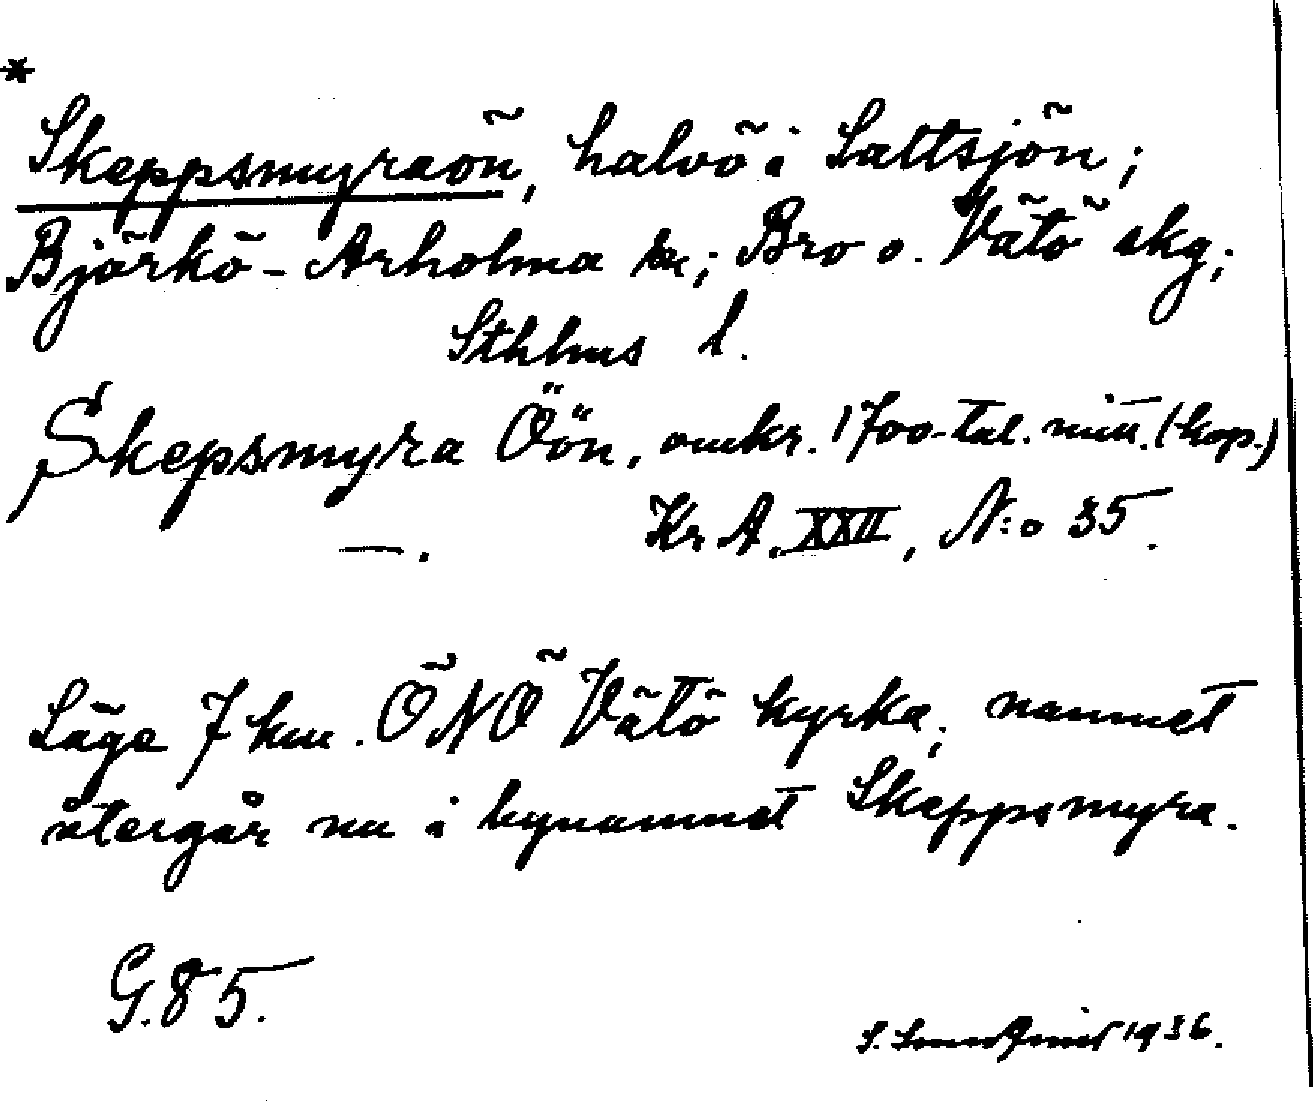 *
Skeppsmyraön, halvö i Saltsjön;
Björkö-Arholma sn; Bro o. Vätö skg;
Sthlms l.
Skepsmyra Öön, omkr. 1700-tal. mitt. (kop.)
—. Kr A. XXII, N:o 35.
Läge 7 km. ÖNÖ Vätö kyrka; namnet
återgår nu i bynamnet Skeppsmyra.
G. 85.
S. 1936.